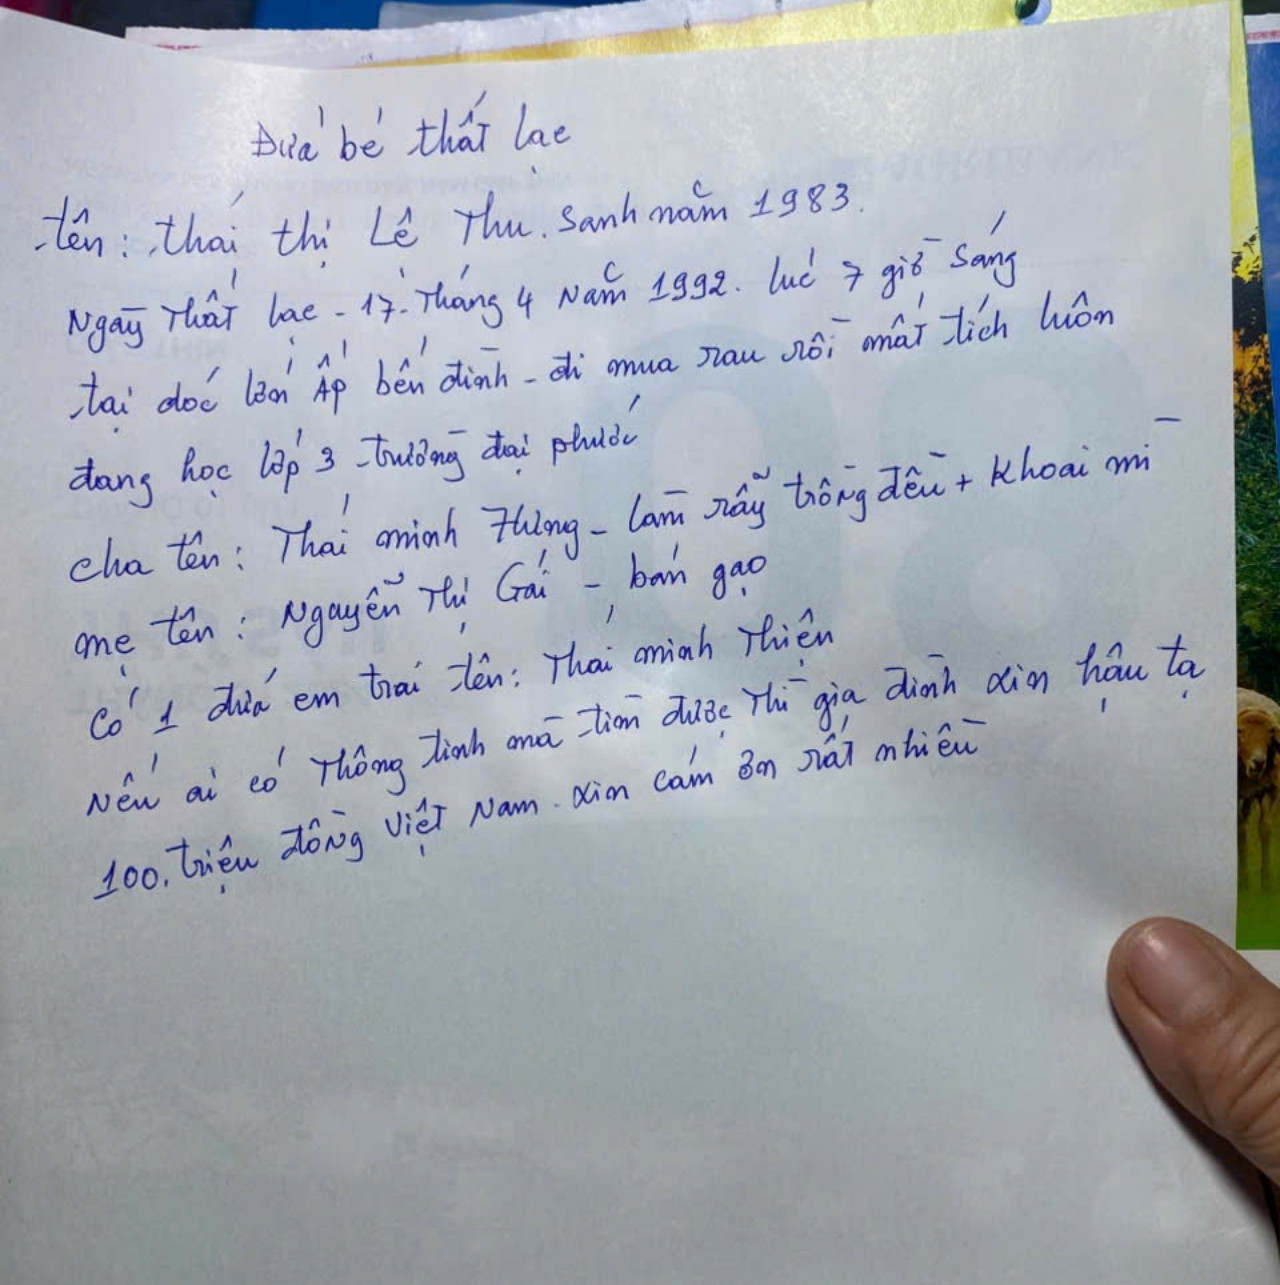 Đứa bé thất lạc
tên: thái thị Lê Thu. Sanh năm 1983.
Ngày Thất lạc - 17. Tháng 4 Năm 1992. lúc 7 giờ Sáng
tại dốc lớn Ấp bến đình - đi mua rau rồi mất tích luôn
đang học lớp 3 - trường đại phước
cha tên: Thái minh Hùng - làm rẫy trồng đều + khoai mì
mẹ tên: Nguyễn Thị Gái - bán gạo
Có 1 đứa em trai tên: Thái minh Thiện
Nếu ai có Thông tinh mà tìm được Thì gia đình xin hậu tạ
100. triệu đồng Việt Nam. xin cám ơn rất nhiều